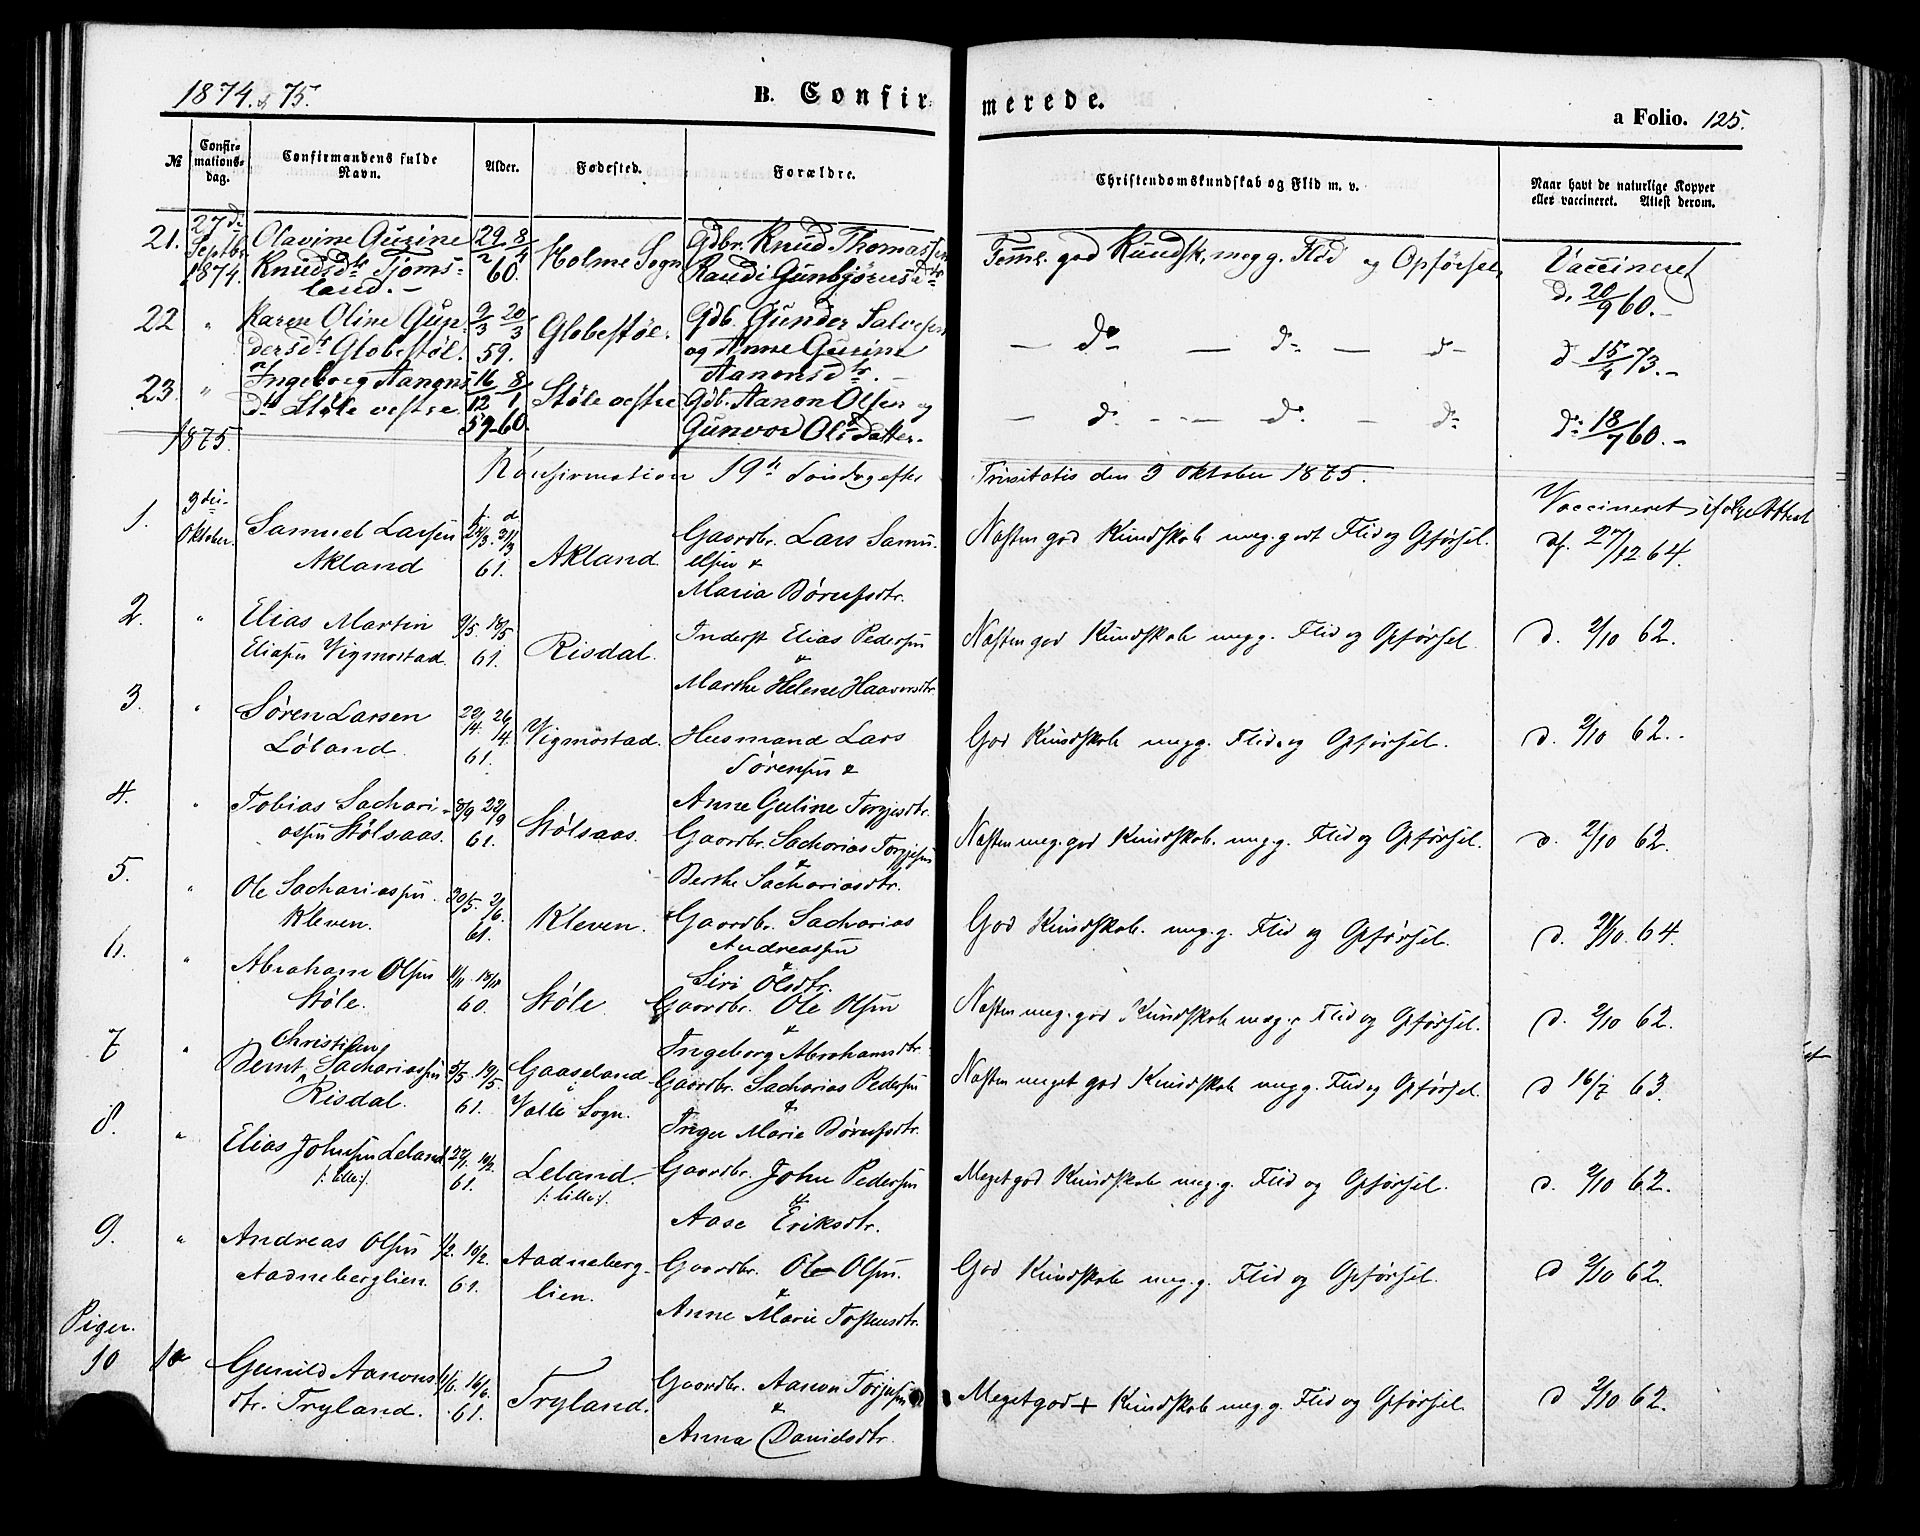 1874 & 75.
B. Confirmerede.
a Folio. 125.
№
Confirmationsdag.
Confirmandens fulde Navn.
Alder.
Fødested.
Forældre.
Christendomskundskab og Flid m. v.
Naar havt de naturlige Kopper eller vaccineret. Attest derom.
21. 27de Septbr. 1874. Olavine Gurine Knudsdtr Tjomsland. 29/2 8/4 60. Holme Sogn Gdbr. Knud Thomassen Randi Gunbjørnsdtr Temml. god Kundsk, meg g. Flid og Opførsel Vaccineret d. 20/9 60.
22 " Karen Oline Gundersdtr Globestøl. 9/3 20/3 59. Globestøl. Gdb. Gunder Salvesen og Anne Gurine Aanonsdtr. — do — do — do d 15/4 73.
23. " Ingeborg Aanonsdtr Støle vestre. 16/12 8/1 59-60. Støle vestre Gdb. Aanon Olsen og Gunvor Olsdatter. — do — do — do do 18/7 60.
1875.
Konfirmation 19de Søndag efter Trinitatis den 3 Oktober 1875.
Vaccineret ifølge Attest
1. 3die Oktober. Samuel Larsen Akland 61. Akland. Gaardbr. Lars Samuelsen & Maria Børufsdtr. Næsten god Kundskab meg. godt Flid og Opførsel. df. 27/12 64.
2. " Elias Martin Eliasen Vigmostad. 9/5. 18/5 61. Risdal. Inderst Elias Pedersen & Marthe Helene Haavorsdtr. Næsten god Kundskab meg g. Flid og Opførsel. d. 2/10 62.
3. " Søren Larsen Løland. 22/4. 26/4. 61. Vigmostad. Husmand Lars Sørensen & Anne Guline Torjesdtr. God Kundskab meg g. Flid og Opførsel. d. 2/10 62.
4. " Tobias Sachariassen Stølsaas. 8/9 22/9 61. Stølsaas. Gaardbr. Sacharias Torjesen & Berthe Sachariasdtr. Næsten meg. god Kundskab. meg g. Flid og Opførsel. d. 2/10 62.
5. " Ole Sachariassen Kleven. 30/5. 2/6. 61. Kleven. Gaardbr. Sacharias Andreassen & Siri Olsdtr. God Kundskab. meg. g. Flid og Opførsel. d. /10. 64.
6. " Abraham Olsen Støle. 1/11. 18/11 60. Støle. Gaardbr. Ole Olsen & Ingeborg Abrahamsdtr. Næsten meg. god Kundskab meg. g Flid og Opførsel. d. 2/10 62.
7 " Bernt Christian Sachariassen Risdal. 5/5. 19/5 61. Gaaseland Valle Sogn. Gaardbr. Sacharias Pedersen & Inger Marie Børufsdtr. Næsten meget god Kundskab meg g. Flid og Opførsel. d 16/7 63.
8. " Elias Johnsen Leland /: lille:/. 27/1. 10/2. 61. Leland. /: lille:/. Gaardbr. John Pedersen & Aase Eriksdtr. Meget god Kundskab meg. g. Flid og Opførsel. d. 2/10 62.
9. " Andreas Olsen Aadneberglien. 1/2. 10/2. 61. Aadneberglien. Gaardbr. Ole Olsen. & Anne Marie Tostensdtr. God Kundskab meg. g. Flid og Opførsel. d 2/10 62.
Piger.
10 Gunild Aanonsdtr. Tryland. 1/6. 16/6. 61. Tryland. Gaardbr. Aanon Torjesen & Anna Davidsdtr. Meget god + Kundskab meg. g. Flid og Opførsel. d 2/10 62.